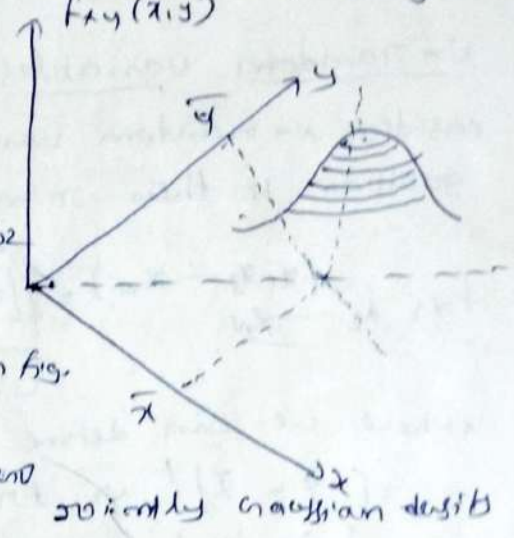 fxy(x,y)
y
ȳ
02
fig.
x̄
x
Jointly Gaussian density